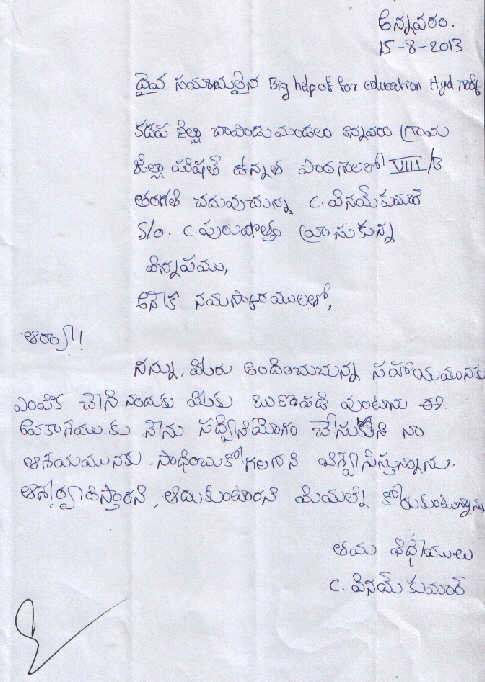 అన్నవరం.
15-8-2013
దైవ సమానమైన Big helpof for education Hyd గార్కి
కడప జిల్లా చాపాడు మండలం అన్నవరం గ్రామ
జిల్లా పరిషత్ ఉన్నత పాఠశాలలో VIII/B
తరగతి చదువుచున్న C. వినయ్ కుమార్
S/o. C పురుషోత్తం వ్రాసుకున్న
విన్నపము,
అనేక నమస్కారములతో,
ఆర్యా!
నన్ను మీరు అందించుచున్న సహాయమునకు
ఎంపిక చేసినందుకు మీకు ఋణపడి వుంటాను ఈ
అవకాశమును నేను సద్వినియోగం చేసుకొని నా
ఆశయమునకు సాధించుకోగలనని విశ్వసిస్తున్నాను.
ఆశీర్వదిస్తారని, ఆదుకుంటారని మిమల్ని కోరుకుంటున్నాను
తమ విధేయులు
C. వినయ్ కుమార్